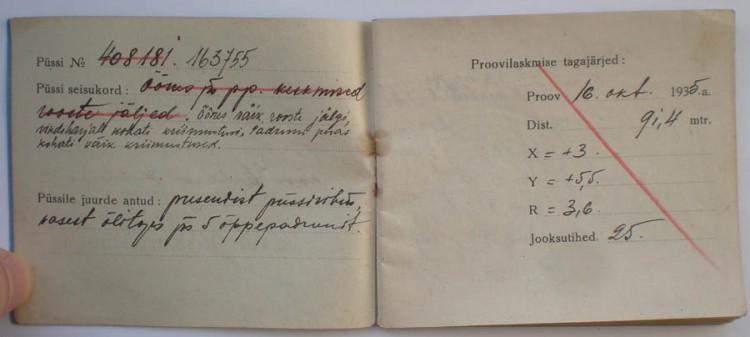 Püssi № 408181. 163755
Püssi seisukord: Õõnes ja pp. keskmised
rooste jäljed. Õõnes väik. rooste jälgi,
kohati kriimustusi, padruni
kohati väik. kriimustused.
Püssile juurde antud: presendist püssirihm,
vasest õlitoos ja 5 õppepadrunit.
Proovilaskmise tagajärjed:
Proov 16. okt. 1935.a.
Dist. 91,4 mtr.
X = +3
Y = +5,5.
R = 3,6
Jooksutihed. 25.